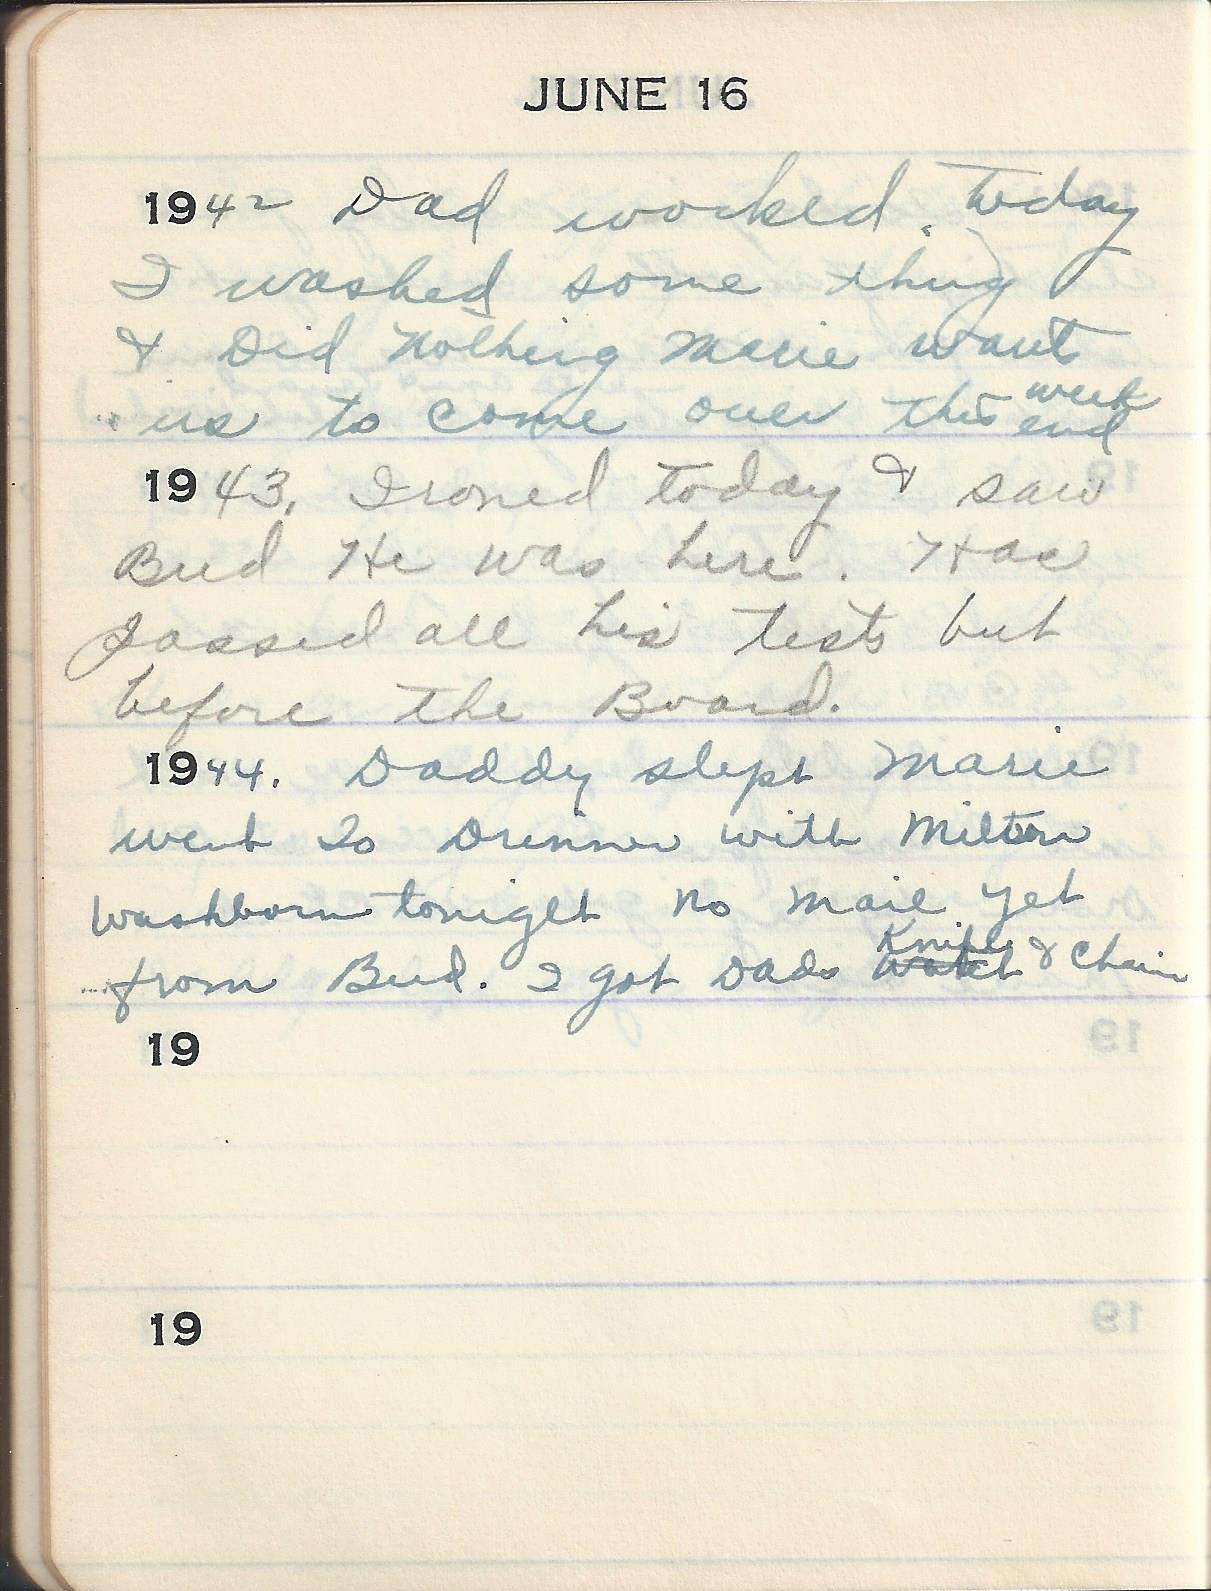 JUNE 16
1942 Dad worked. today
I washed some things
& Did Nothing Marie want
us to come over this week end
1943. Ironed today & saw
Bud He was here. Has
passed all his tests but
before the Board.
1944. Daddy slept Marie
went to Dinner with Milton
Washborn tonight no mail yet
from Bud. I got Dads watch Knife & Chain
19
19